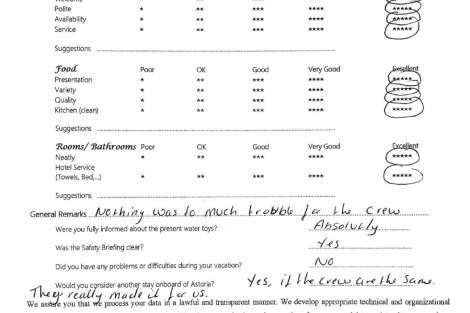 Welcome * ** *** **** *****
Polite * ** *** **** *****
Availability * ** *** **** *****
Service * ** *** **** *****
Suggestions
Food Poor OK Good Very Good Excellent
Presentation * ** *** **** *****
Variety * ** *** **** *****
Quality * ** *** **** *****
Kitchen (clean) * ** *** **** *****
Suggestions
Rooms/ Bathrooms Poor OK Good Very Good Excellent
Neatly * ** *** **** *****
Hotel Service
(Towels, Bed,...) * ** *** **** *****
Suggestions
General Remarks Nothing was to much trobble for the crew
Were you fully informed about the present water toys? Absolutly
Was the Safety Briefing clear? Yes
Did you have any problems or difficulties during your vacation? No
Would you consider another stay onboard of Astorie? Yes, if the crew are the same.
They really made it for us.
We assure you that we process your data in a lawful and transparent manner. We develop appropriate technical and organizational